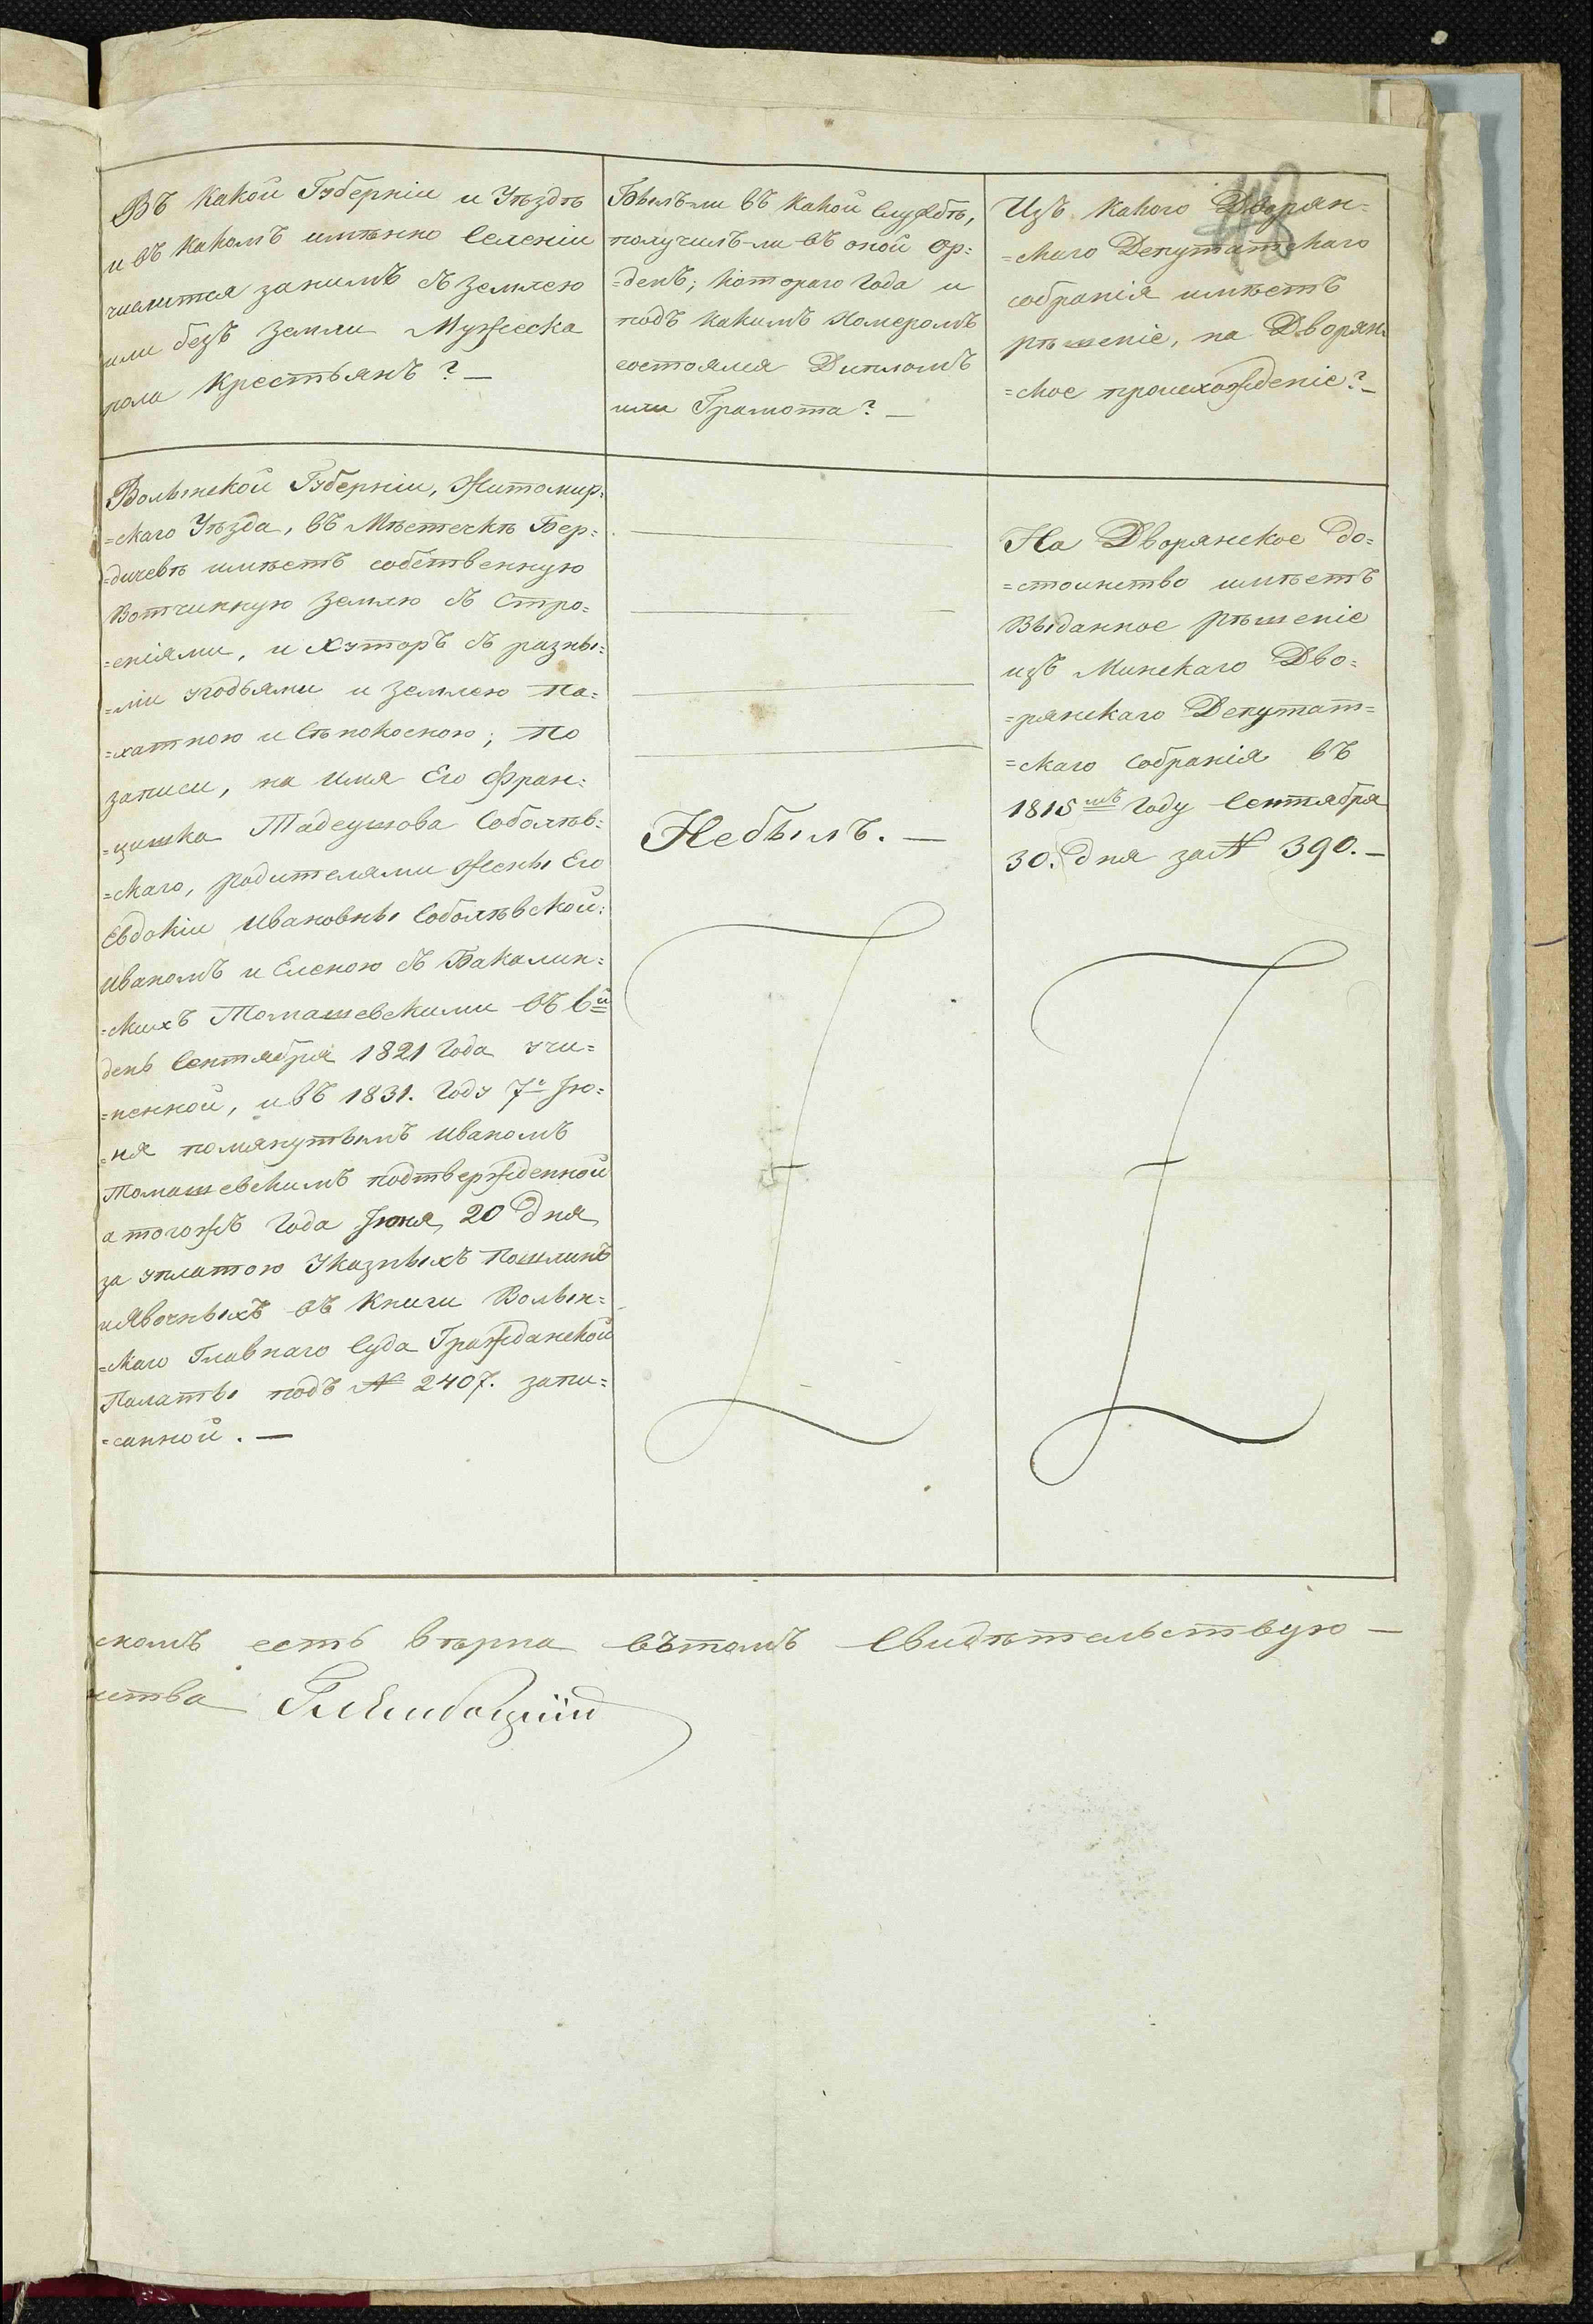 Въ какой Губерніи и Уѣздѣ
и въ какомъ имѣнно Селеніи
числится занимъ съ землею
или безъ земли Мужеска
пола Крестьянъ? —
Былъ-ли въ какой Службѣ,
получилъ-ли въ оной ор=
=денъ; котораго Года и
подъ какимъ Номеромъ
состоялся Дипломъ
или Грамота? —
Изъ какого Дворян=
=скаго Депутатскаго
собранія имѣетъ
рѣшеніе, на Дворян=
=ское происхожденіе? —
Волынской Губерніи, Житомир=
=скаго Уѣзда, въ Мѣстечкѣ Бер=
=дичевѣ имѣетъ собственную
Вотчинную землю съ Стро=
=еніями, и Хуторъ съ разны=
=ми угодьями и землею па=
=хатною и Сѣнокосною; по
записи, на имя Его Фран=
=цишка Тадеушова Соболѣв=
=скаго, родителями Жены Его
Евдокіи Ивановны Соболѣвской:
Иваномъ и Еленою съ Бакалин=
=скихъ Томашевскими въ 6й
день Сентября 1821 Года учи=
=ненной, и въ 1831. Году 7го Ію=
=ня помянутымъ Иваномъ
Томашевскимъ подтвержденной
а тогожъ Года Іюня 20 дня
за уплатою Указныхъ Пошлинъ
и Явочныхъ въ Книги Волын=
=скаго Главнаго Суда Гражданской
Палаты подъ № 2407. запи=
=санной. —
Небылъ. —
На Дворянское до=
=стоинство имѣетъ
Выданное рѣшеніе
изъ Минскаго Дво=
=рянскаго Депутат=
=скаго Собранія въ
1815мъ Году Сентября
30. дня за № 390. —
скомъ есть вѣрна вътомъ Свидѣтельствую —
нства